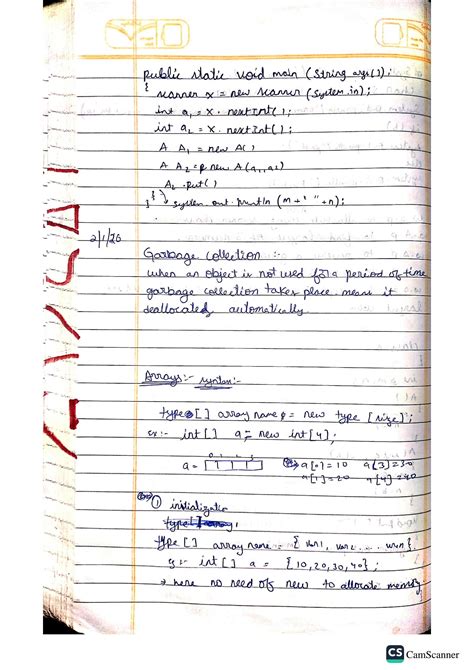 public static void main (String args[]);
{ scanner x = new scanner (system.in);
int a1 = x. nextInt();
int a2 = x. nextInt();
A A1 = new A()
A A2 = new A(a1,a2)
A2 .put()
} system.out.println (m+' "+n);
}
2/1/26
Garbage collection :-
when an object is not used for a period of time
garbage collection takes place means it
deallocated automatically.
Arrays:- syntax:-
type [ ] array name = new type [size];
eg:- int [ ] a = new int [4];
0 1 2 3
a = a[0]=10 a[3]=30
a[1]=20 a[4]=40
① initialization
type [ ] array name = { var1, var2 ... varn};
eg:- int [ ] a = {10,20,30,40};
→ here no need of new to allocate memory
CS CamScanner